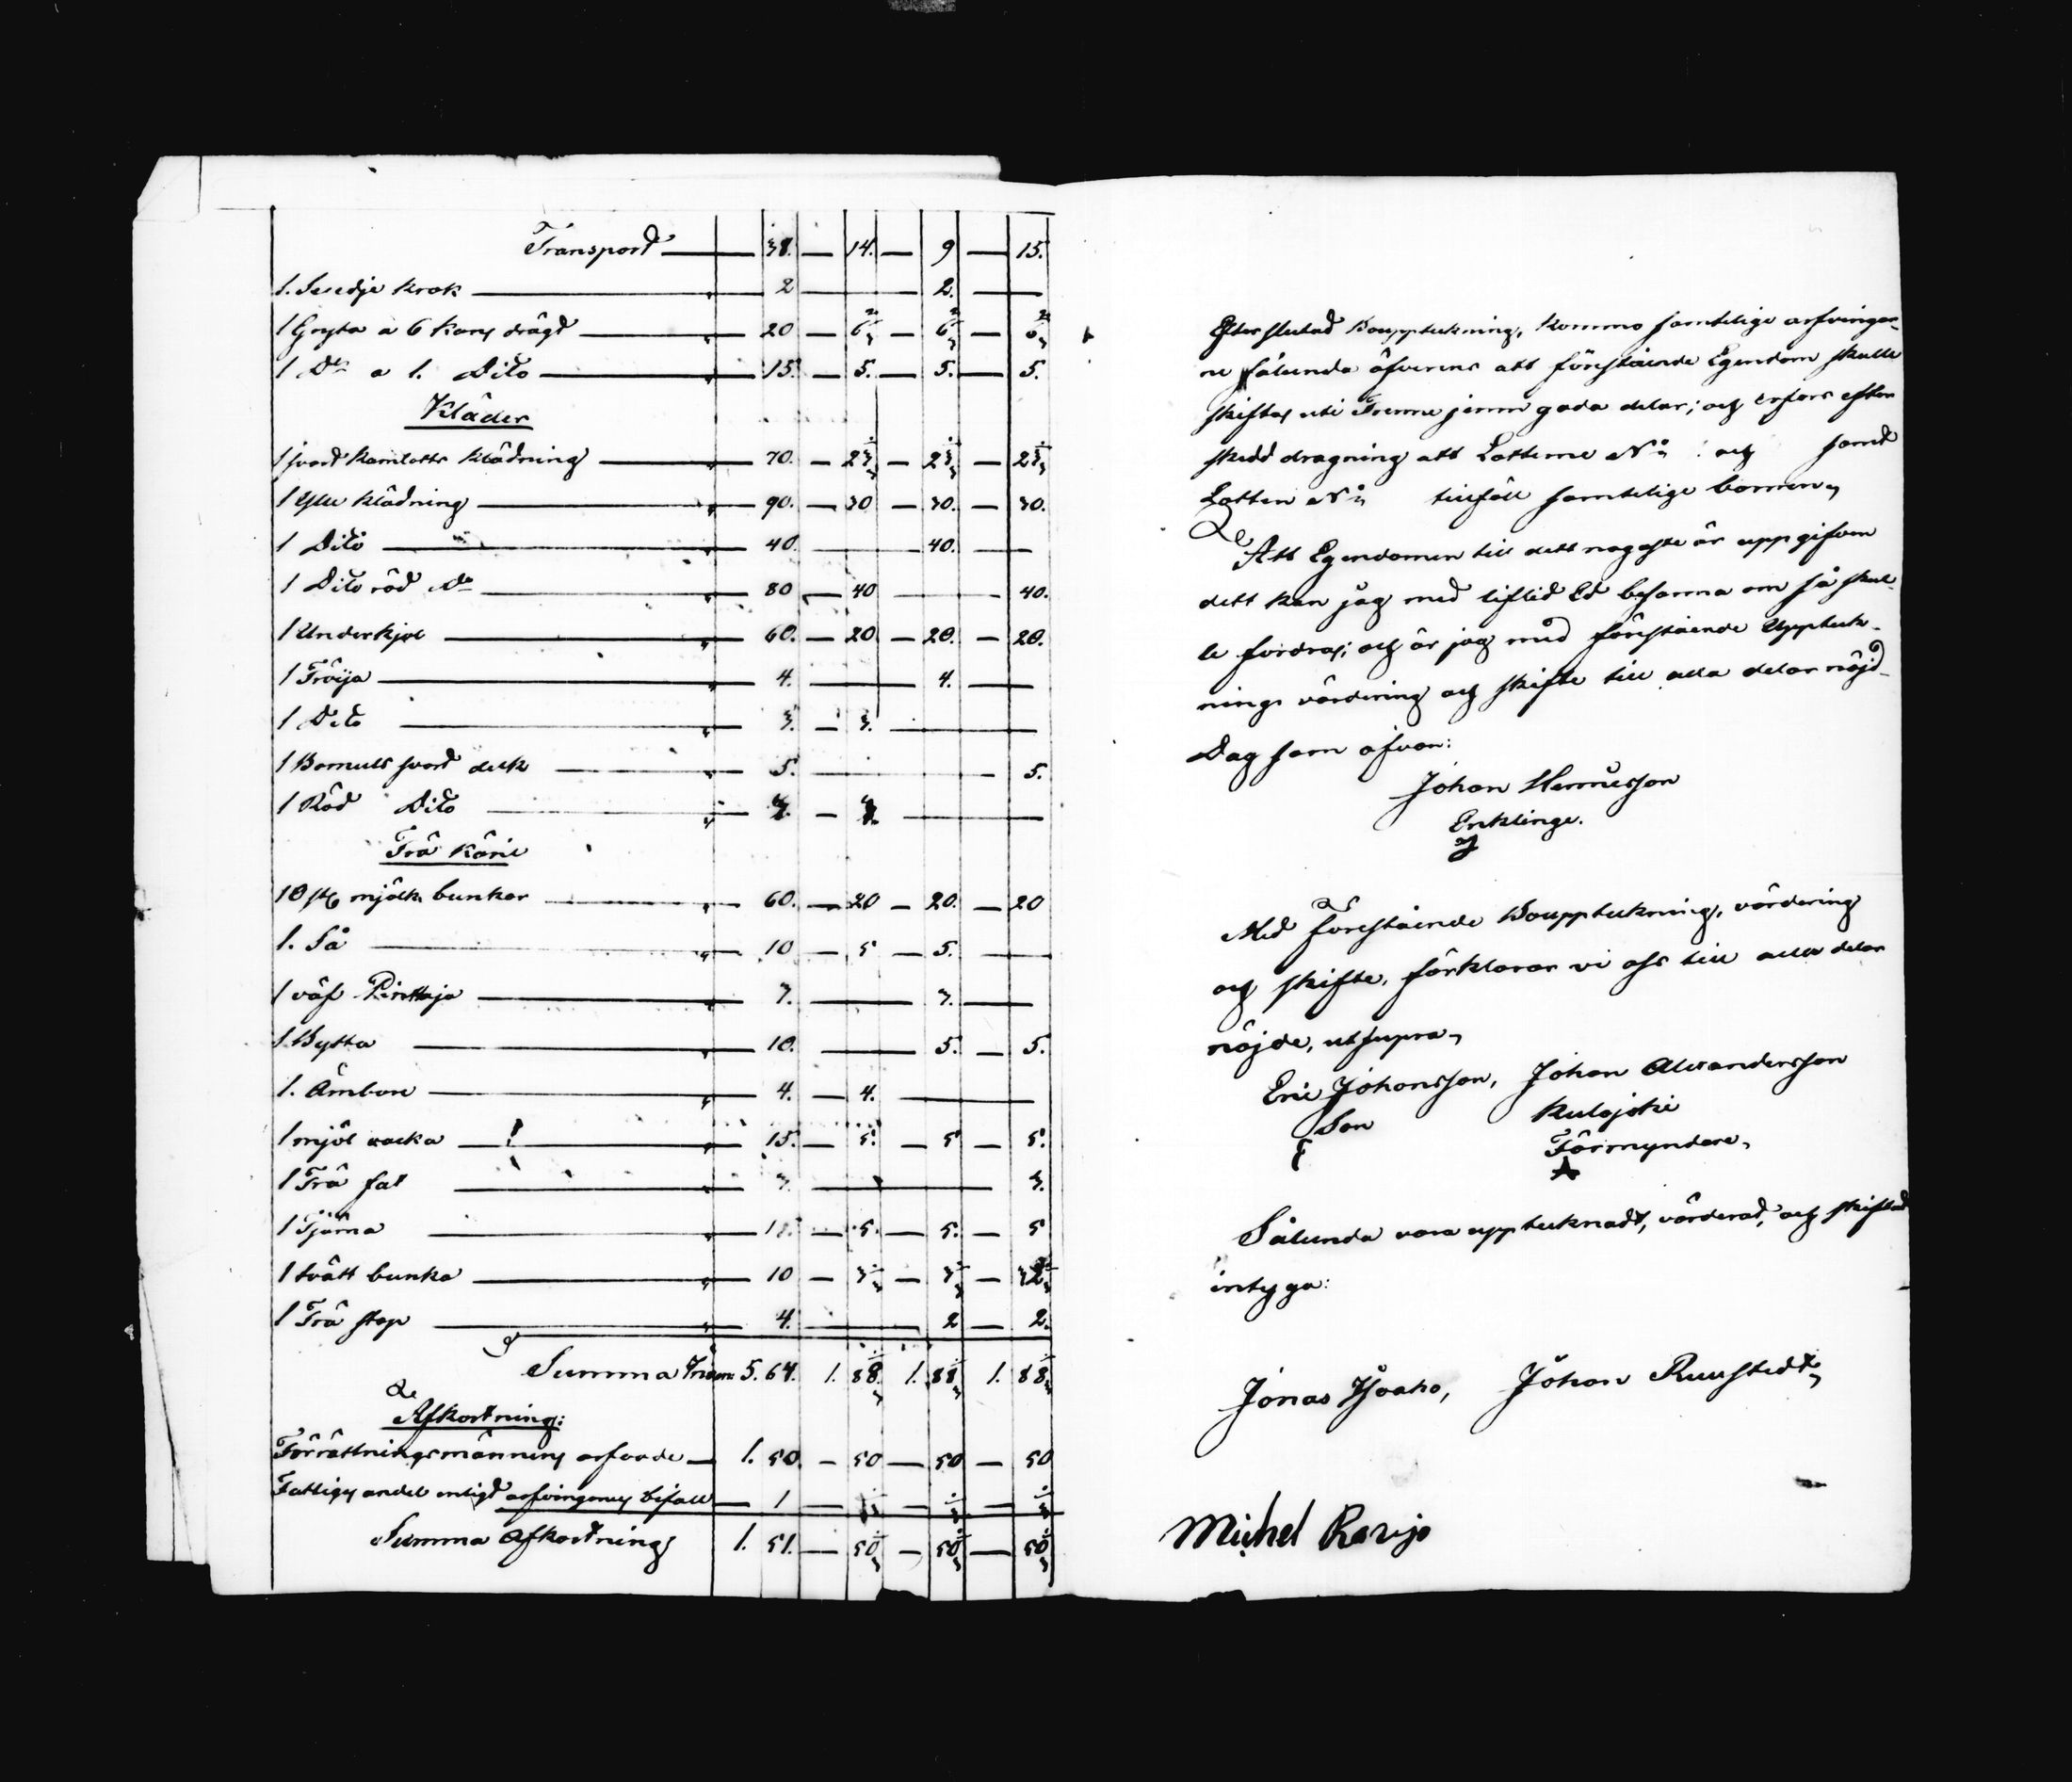 Transport — 38. — 14. — 9 — 15.
1. Svedje krok — 2 — 2. —
1 Gryta a 6 kan:s drägd — 20 — 6 2/3 — 6 2/3 — 6 2/3
1 D:o a 1. Dito — 15. — 5. — 5. — 5.
Kläder
1 svart kamlotts klädning — 70. — 23 1/3 — 23 1/3 — 23 1/3
1 Ylle klädning — 90. — 30 — 30. — 30.
1 Dito — 40. — 40. —
1 Dito röd D:o — 80 — 40 — 40.
1 Underkjol — 60. — 20 — 20. — 20.
1 Tröija — 4. — 4. —
1 Dito — 3. — 3. —
1 Bomulls svart duk — 5. — 5.
1 Röd Dito —
Trä Käril
10 st mjölk bunkar — 60. — 20 — 20. — 20
1. Så — 10 — 5 — 5. —
1 väf — 7. — 7. —
1. Bytta — 10. — 5. — 5.
1. Ämbare — 4. — 4. —
1 mjöl vacka — 15. — 5. — 5 — 5.
1 Trä fat — 3. — 3.
1 Tjärna — 15. — 5. — 5. — 5
1 tvätt bunka — 10 — 3 1/3 — 3 1/3 — 3 1/3
1 Trä stop — 4. — 2 — 2.
Summa 5. 64. 1. 88 1. 88 1. 88
Afkortning:
Förrättningsmännens arfvode — 1. 50. — 50 — 50 — 50
Fattigs andel enligt arfvingarnes bifall — 1 — 1/3 — 1/3 — 1/3
Summa Afkortning 1. 51. — 50 1/3 — 50 1/3 — 50 1/3
Efter slutad Bouppteckning, kommo samtelige arfvingar-
ne sålunda öfverens att förestående Egendom skulle
skiftas uti Trenne jemn goda delar; och erfors efter
skedd dragning att Lotterne N:o och samt
Lotten N:o tillföll samtelige barnen,
Att Egendomen till dett nogaste är uppgifven
dett kan jag med liflid Ed besanna om så skul-
le fordras; och är jag med förestående Uppteck-
nings värdering och skifte till alla delar nöjd
Dag som ofvan:
Johan
Enklinge.
Med förestående Bouppteckning, värdering
och skifte, förklarar vi oss till alla delar
nöjde, utsupra,
Eric Johansson, Johan Alexandersson
Son Kulajoki
Förmyndare,
Sålunda vara upptecknadt, värderad, och skiftad
intyga:
Jonas Isoaho, Johan
Michel Ravijo